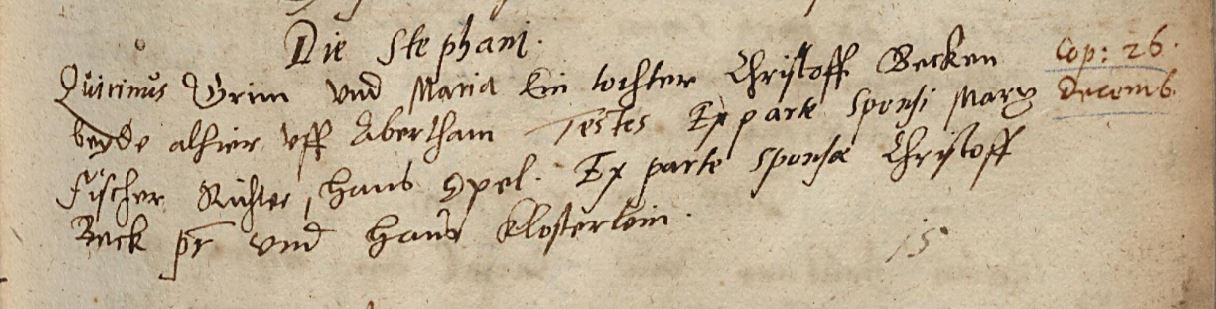 Die Stephani.
Quirinus Grim und Maria Ein tochter Christoff Becken
Cop: 26.
Decemb.
beyde alhier uff Abertham Testes Ex parte Sponsi Marx
Fischer Richter, Hans Opel. Ex parte Sponsæ Christoff
Beck pr und Hans Klosterlein.
15